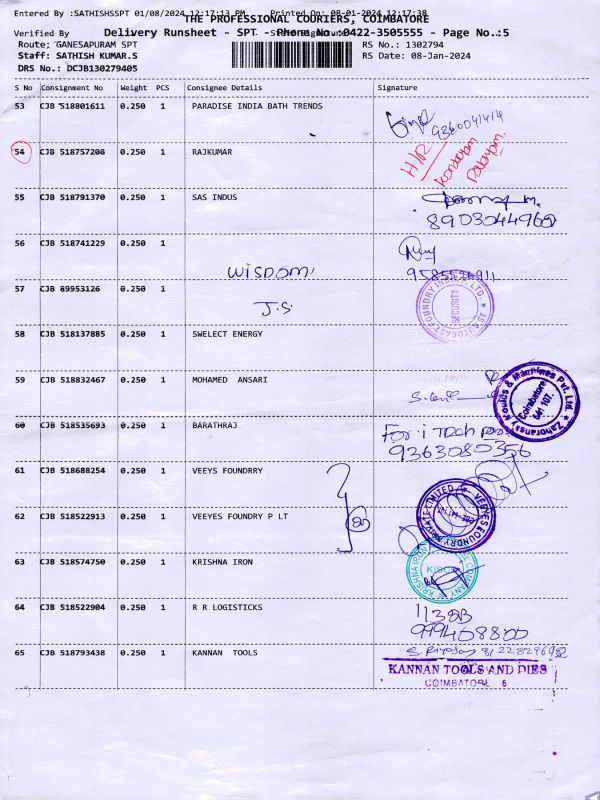 Entered By :SATHISHSSPT 01/08/2024 12:17:13 PM Printed On: 08-01-2024 12:17:38
THE PROFESSIONAL COURIERS, COIMBATORE
Verified By Delivery Runsheet - SPT - Phone No.:0422-3505555 - Page No.:5
Route: GANESAPURAM SPT RS No.: 1302794
Staff: SATHISH KUMAR.S RS Date: 08-Jan-2024
DRS No.: DCJB130279405
S No Consignment No Weight PCS Consignee Details Signature
53 CJB 518801611 0.250 1 PARADISE INDIA BATH TRENDS
54 CJB 518757208 0.250 1 RAJKUMAR
55 CJB 518791370 0.250 1 SAS INDUS
56 CJB 518741229 0.250 1
WISDOM
57 CJB 89953126 0.250 1 J.S.
JS AUTOCAST FOUNDRY INDIA P. LTD. SECURITY
58 CJB 518137885 0.250 1 SWELECT ENERGY
59 CJB 518832467 0.250 1 MOHAMED ANSARI
Zahoransky Moulds & Machines Pvt. Ltd. Coimbatore 641 107.
60 CJB 518535693 0.250 1 BARATHRAJ
9363080356
61 CJB 518688254 0.250 1 VEEYS FOUNDRRY
62 CJB 518522913 0.250 1 VEEYES FOUNDRY P LT
63 CJB 518574750 0.250 1 KRISHNA IRON
64 CJB 518522904 0.250 1 R R LOGISTICKS
65 CJB 518793438 0.250 1 KANNAN TOOLS
KANNAN TOOLS AND DIES
COIMBATORE 6